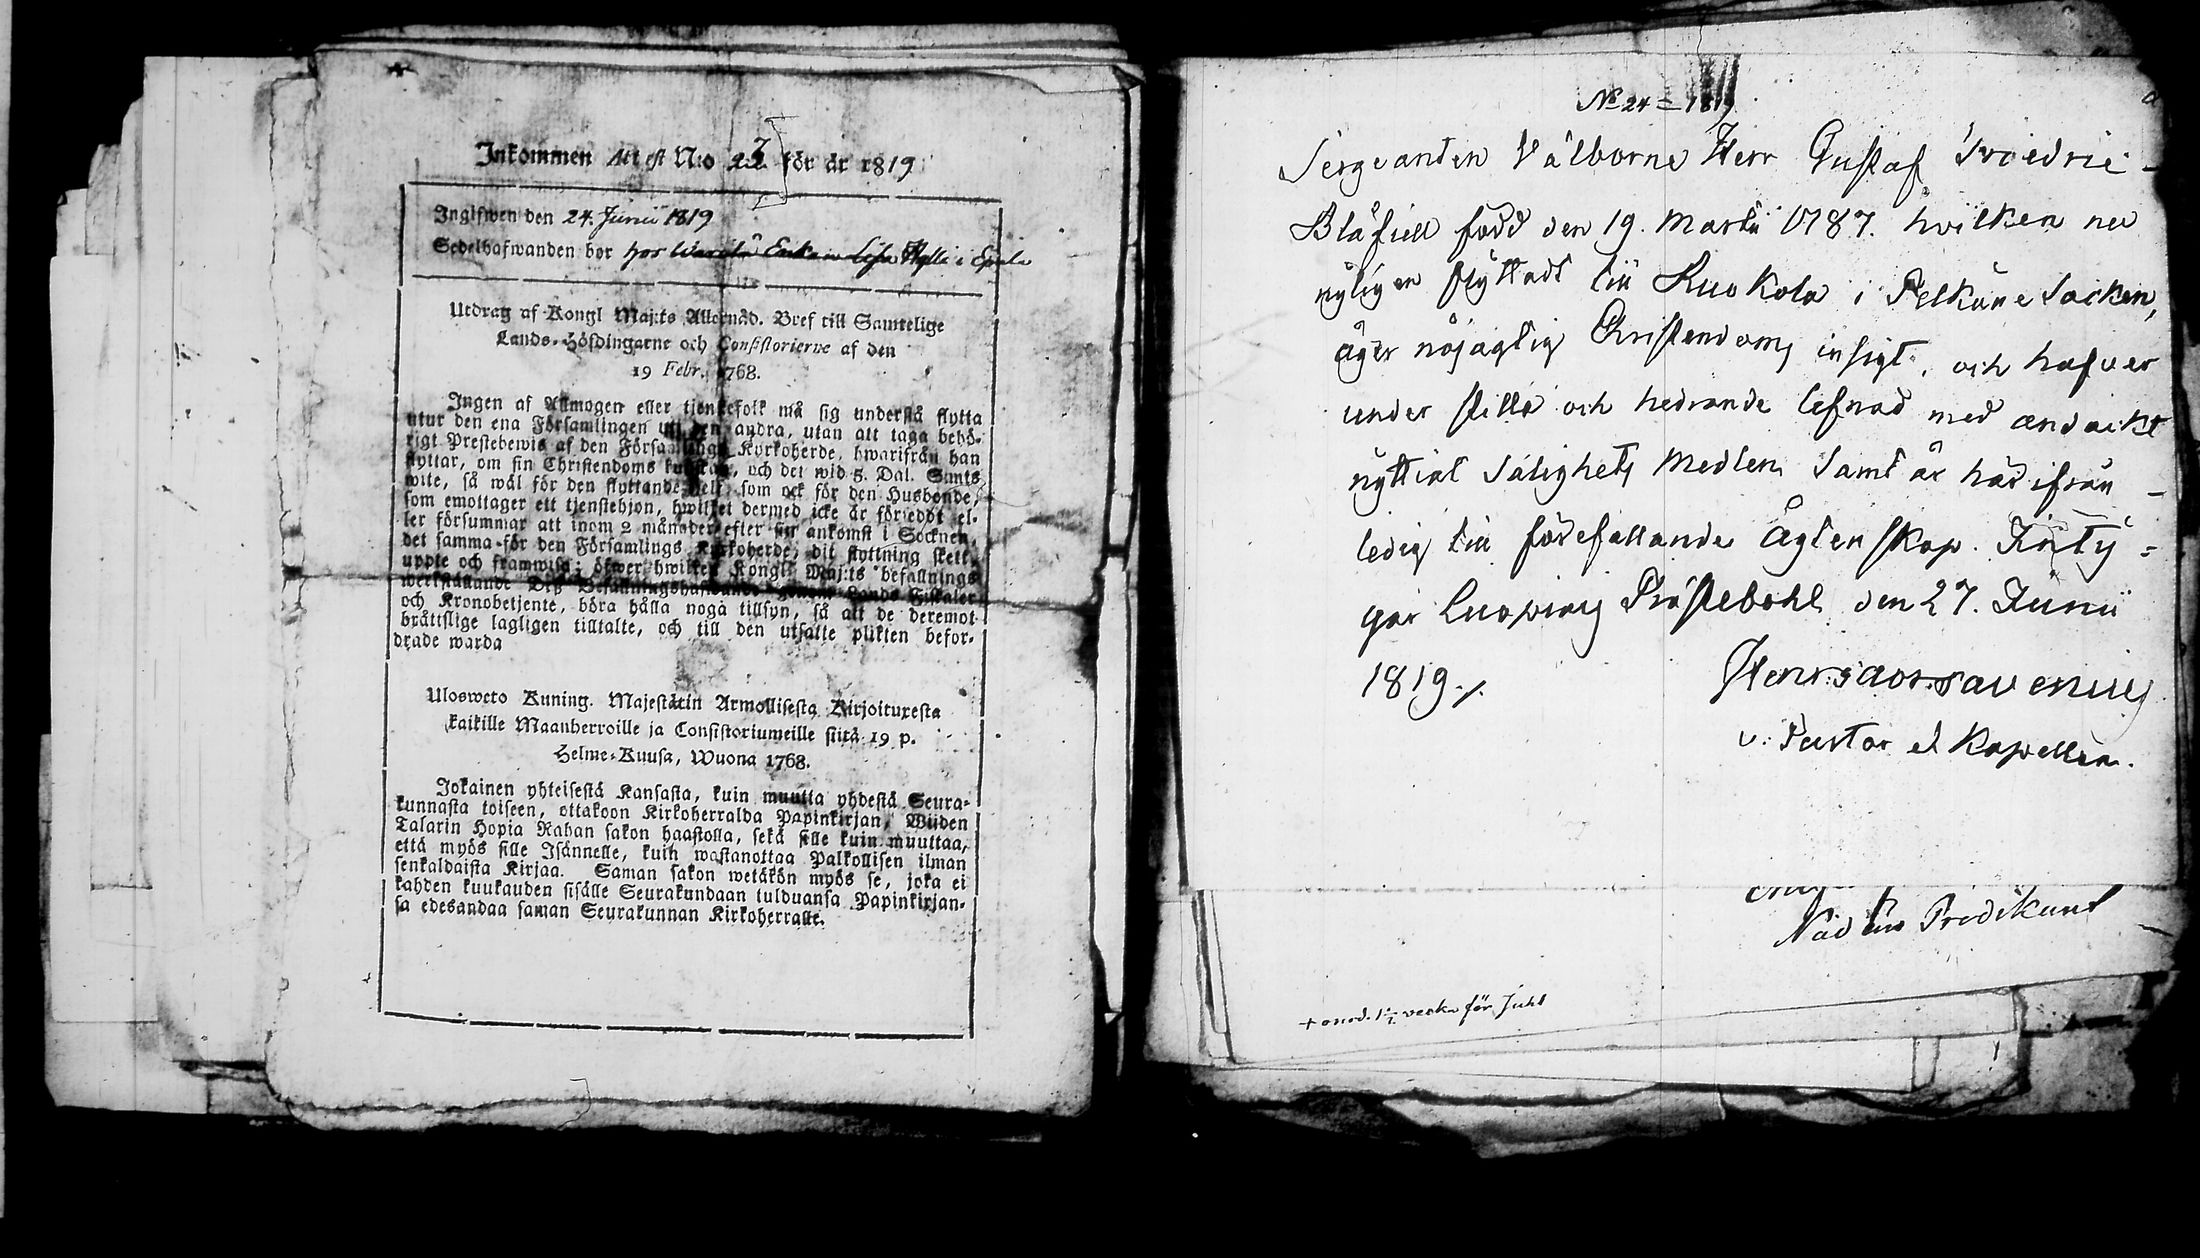 Inkommen Attest N:o 23 för år 1819
Ingifwen den 24. Junii 1819
Sedelhafwanden bor hos Enkan Lisa i
Utdrag af Kongl Maj:ts Allernåd. Bref till Samtelige
Lands-Höfdingarne och Consistorierne af den
19 Febr. 1768.
Ingen af Allmogen eller tjenstefolk må sig understå flytta
utur den ena Församlingen uti den andra, utan att taga behö-
rigt Prestebewis af den Församlings Kyrkoherde, hwarifrån han
flyttar, om sin Christendoms kunskap, och det wid 5. Dal. Smts
wite, så wäl för den flyttande sjelf, som ock för den Husbonde,
som emottager ett tjenstehjon, hwilket dermed icke är försedt el-
ler försummar att inom 2 månader efter sin ankomst i Socknen,
det samma för den Församlings Kyrkoherde, dit flyttning skett,
uppte och framwisa; öfwer hwilket Kongl. Maj:ts befallnings
werkställande Dess Befallningshafwande genom Lands Fiskaler
och Kronobetjente, böra hålla noga tillsyn, så att de deremot
bråttslige lagligen tilltalte, och till den utsatte plikten befor-
drade warda
Ulosweto Kuning. Majestätin Armollisesta Kirjoituxesta
kaikille Maanherroille ja Consistoriumeille siitä 19 p.
Helme-Kuusa, Wuona 1768.
Jokainen yhteisestä Kansasta, kuin muutta yhdestä Seura-
kunnasta toiseen, ottakoon Kirkoherralda Papinkirjan, Wiiden
Talarin Hopia Rahan sakon haastolla, sekä sille kuin muuttaa,
että myös sille Isännelle, kuin wastanottaa Palkollisen ilman
senkaldaista Kirjaa. Saman sakon wetäkön myös se, joka ei
kahden kuukauden sisälle Seurakundaan tulduansa Papinkirjan-
sa edesandaa saman Seurakunnan Kirkoherralle.
No 24 = 1819
Sergeanten Välborne Herr Gustaf Friedric
Blåfield född den 19. Martii 1787. hvilken nu
nyligen flyttadt till Kuokola i Pelkäne Socken,
äger nöjagtig Christendoms insigt, och hafver
under stilla och hedrande lefnad med andackt
nyttiat Salighets Medlen Samt är härifrån
ledig till förefallande Ägtenskap. Inty-
gar Ludvig Pröstebohl den 27. Junii
1819 ./.
v. Pastor et Kapellan.
Predikant
för Juhl